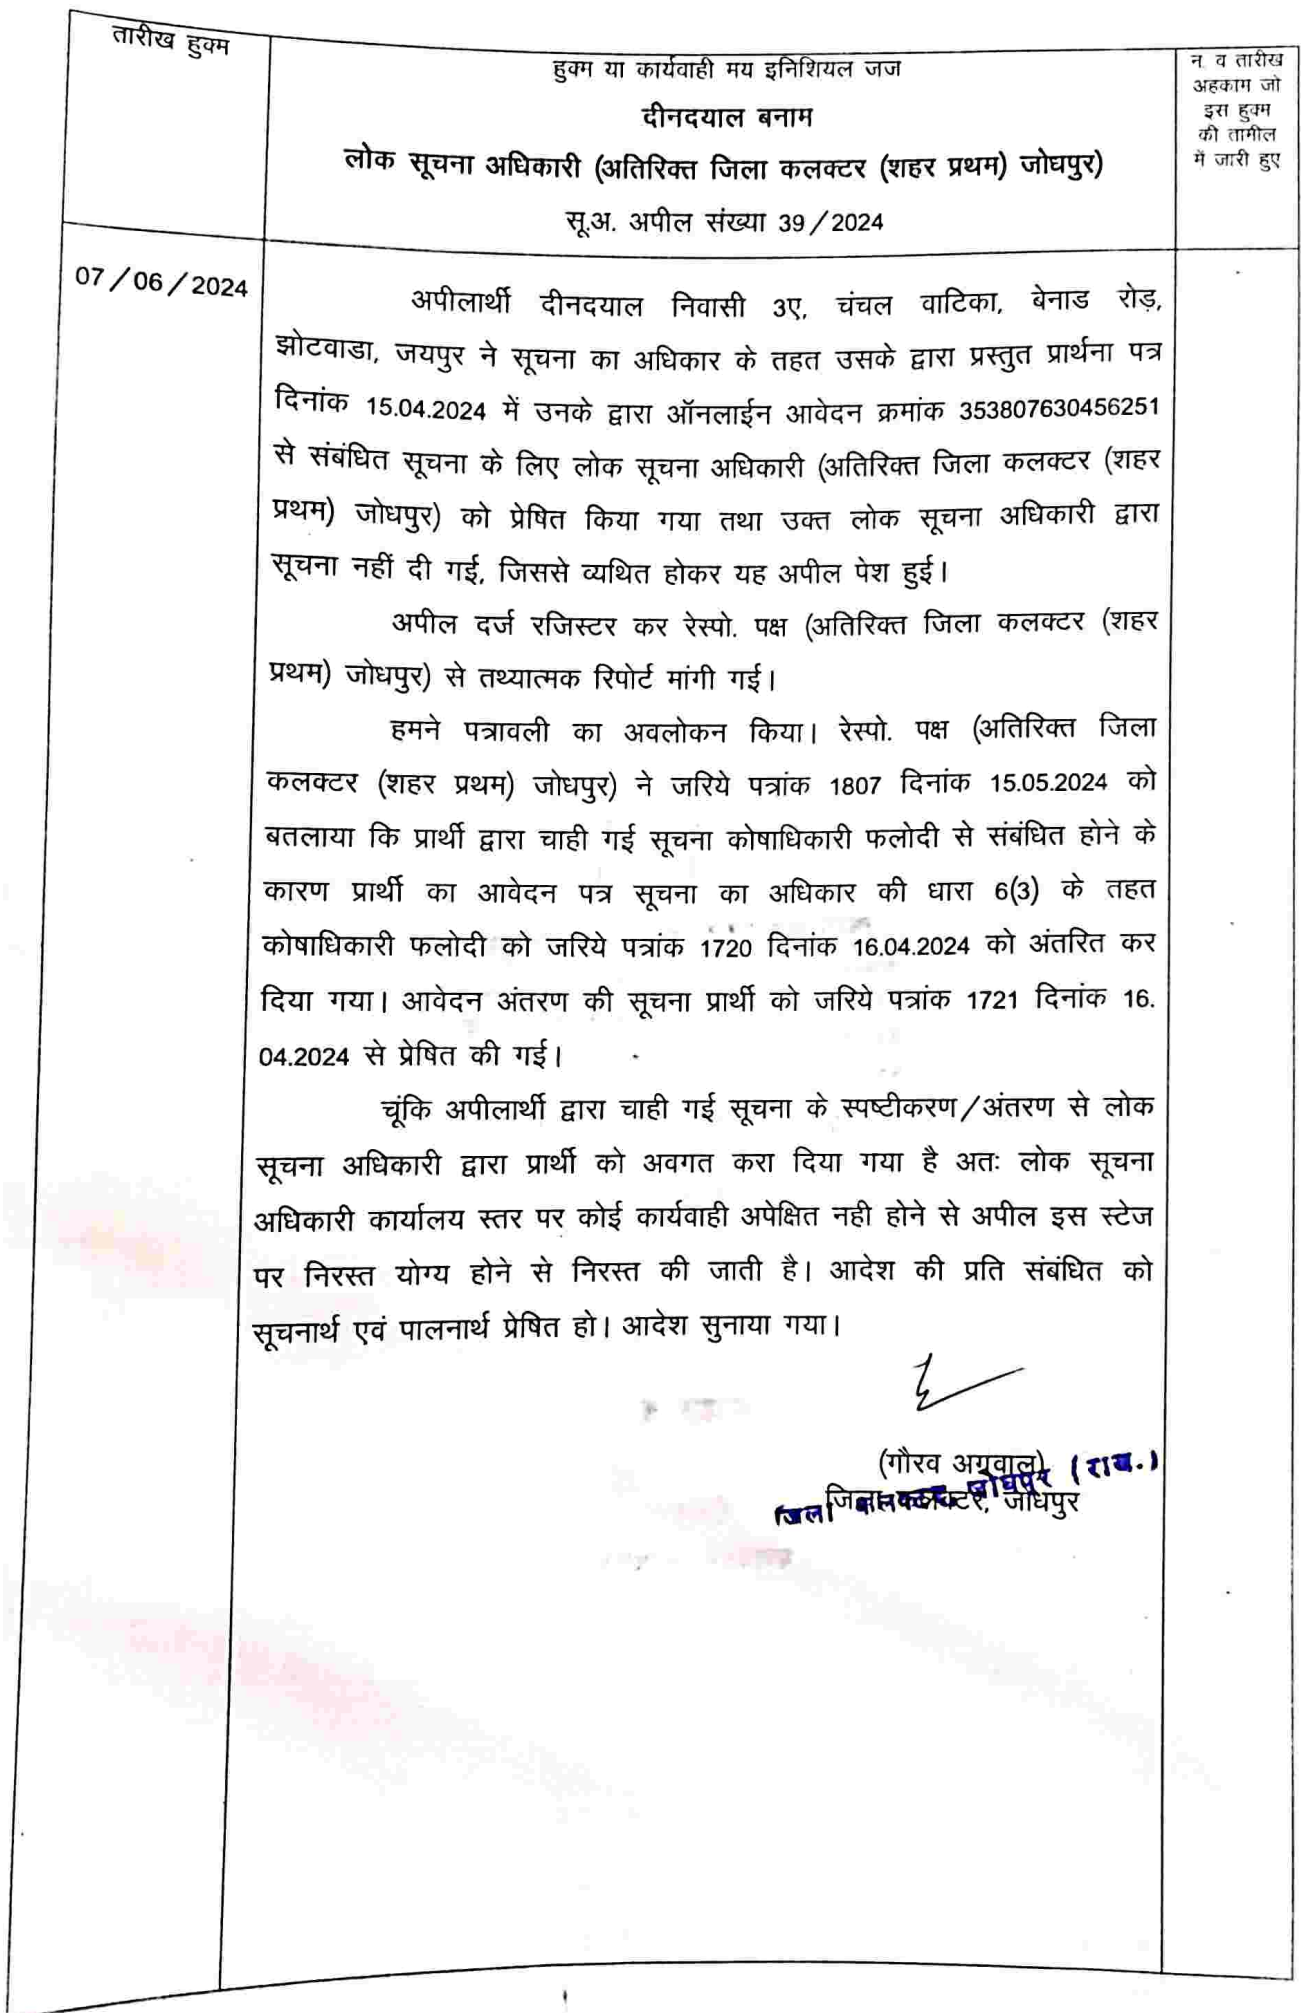 तारीख हुक्म
हुक्म या कार्यवाही मय इनिशियल जज
दीनदयाल बनाम
लोक सूचना अधिकारी (अतिरिक्त जिला कलक्टर (शहर प्रथम) जोधपुर)
सू.अ. अपील संख्या 39/2024
न व तारीख
अहकाम जो
इस हुक्म
की तामील
में जारी हुए
07/06/2024
अपीलार्थी दीनदयाल निवासी 3ए, चंचल वाटिका, बेनाड रोड़,
झोटवाडा, जयपुर ने सूचना का अधिकार के तहत उसके द्वारा प्रस्तुत प्रार्थना पत्र
दिनांक 15.04.2024 में उनके द्वारा ऑनलाईन आवेदन क्रमांक 353807630456251
से संबंधित सूचना के लिए लोक सूचना अधिकारी (अतिरिक्त जिला कलक्टर (शहर
प्रथम) जोधपुर) को प्रेषित किया गया तथा उक्त लोक सूचना अधिकारी द्वारा
सूचना नहीं दी गई, जिससे व्यथित होकर यह अपील पेश हुई।
अपील दर्ज रजिस्टर कर रेस्पो. पक्ष (अतिरिक्त जिला कलक्टर (शहर
प्रथम) जोधपुर) से तथ्यात्मक रिपोर्ट मांगी गई।
हमने पत्रावली का अवलोकन किया। रेस्पो. पक्ष (अतिरिक्त जिला
कलक्टर (शहर प्रथम) जोधपुर) ने जरिये पत्रांक 1807 दिनांक 15.05.2024 को
बतलाया कि प्रार्थी द्वारा चाही गई सूचना कोषाधिकारी फलोदी से संबंधित होने के
कारण प्रार्थी का आवेदन पत्र सूचना का अधिकार की धारा 6(3) के तहत
कोषाधिकारी फलोदी को जरिये पत्रांक 1720 दिनांक 16.04.2024 को अंतरित कर
दिया गया। आवेदन अंतरण की सूचना प्रार्थी को जरिये पत्रांक 1721 दिनांक 16.
04.2024 से प्रेषित की गई।
चूंकि अपीलार्थी द्वारा चाही गई सूचना के स्पष्टीकरण/अंतरण से लोक
सूचना अधिकारी द्वारा प्रार्थी को अवगत करा दिया गया है अतः लोक सूचना
अधिकारी कार्यालय स्तर पर कोई कार्यवाही अपेक्षित नही होने से अपील इस स्टेज
पर निरस्त योग्य होने से निरस्त की जाती है। आदेश की प्रति संबंधित को
सूचनार्थ एवं पालनार्थ प्रेषित हो। आदेश सुनाया गया।
(गौरव अग्रवाल)
जिला कलक्टर, जोधपुर
जिला कलक्टर, जोधपुर (राज.)